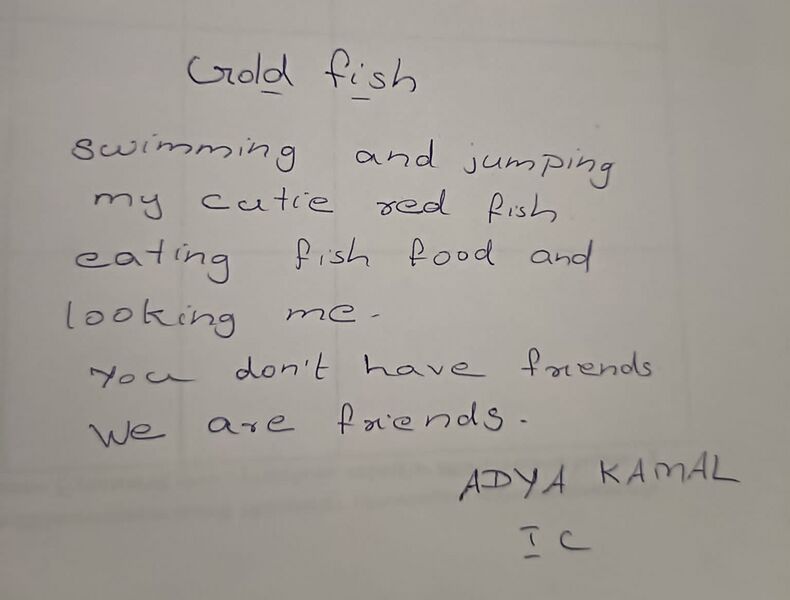 Gold fish
swimming and jumping
my cutie red fish
eating fish food and
looking me.
You don't have friends
We are friends.
ADYA KAMAL
I C